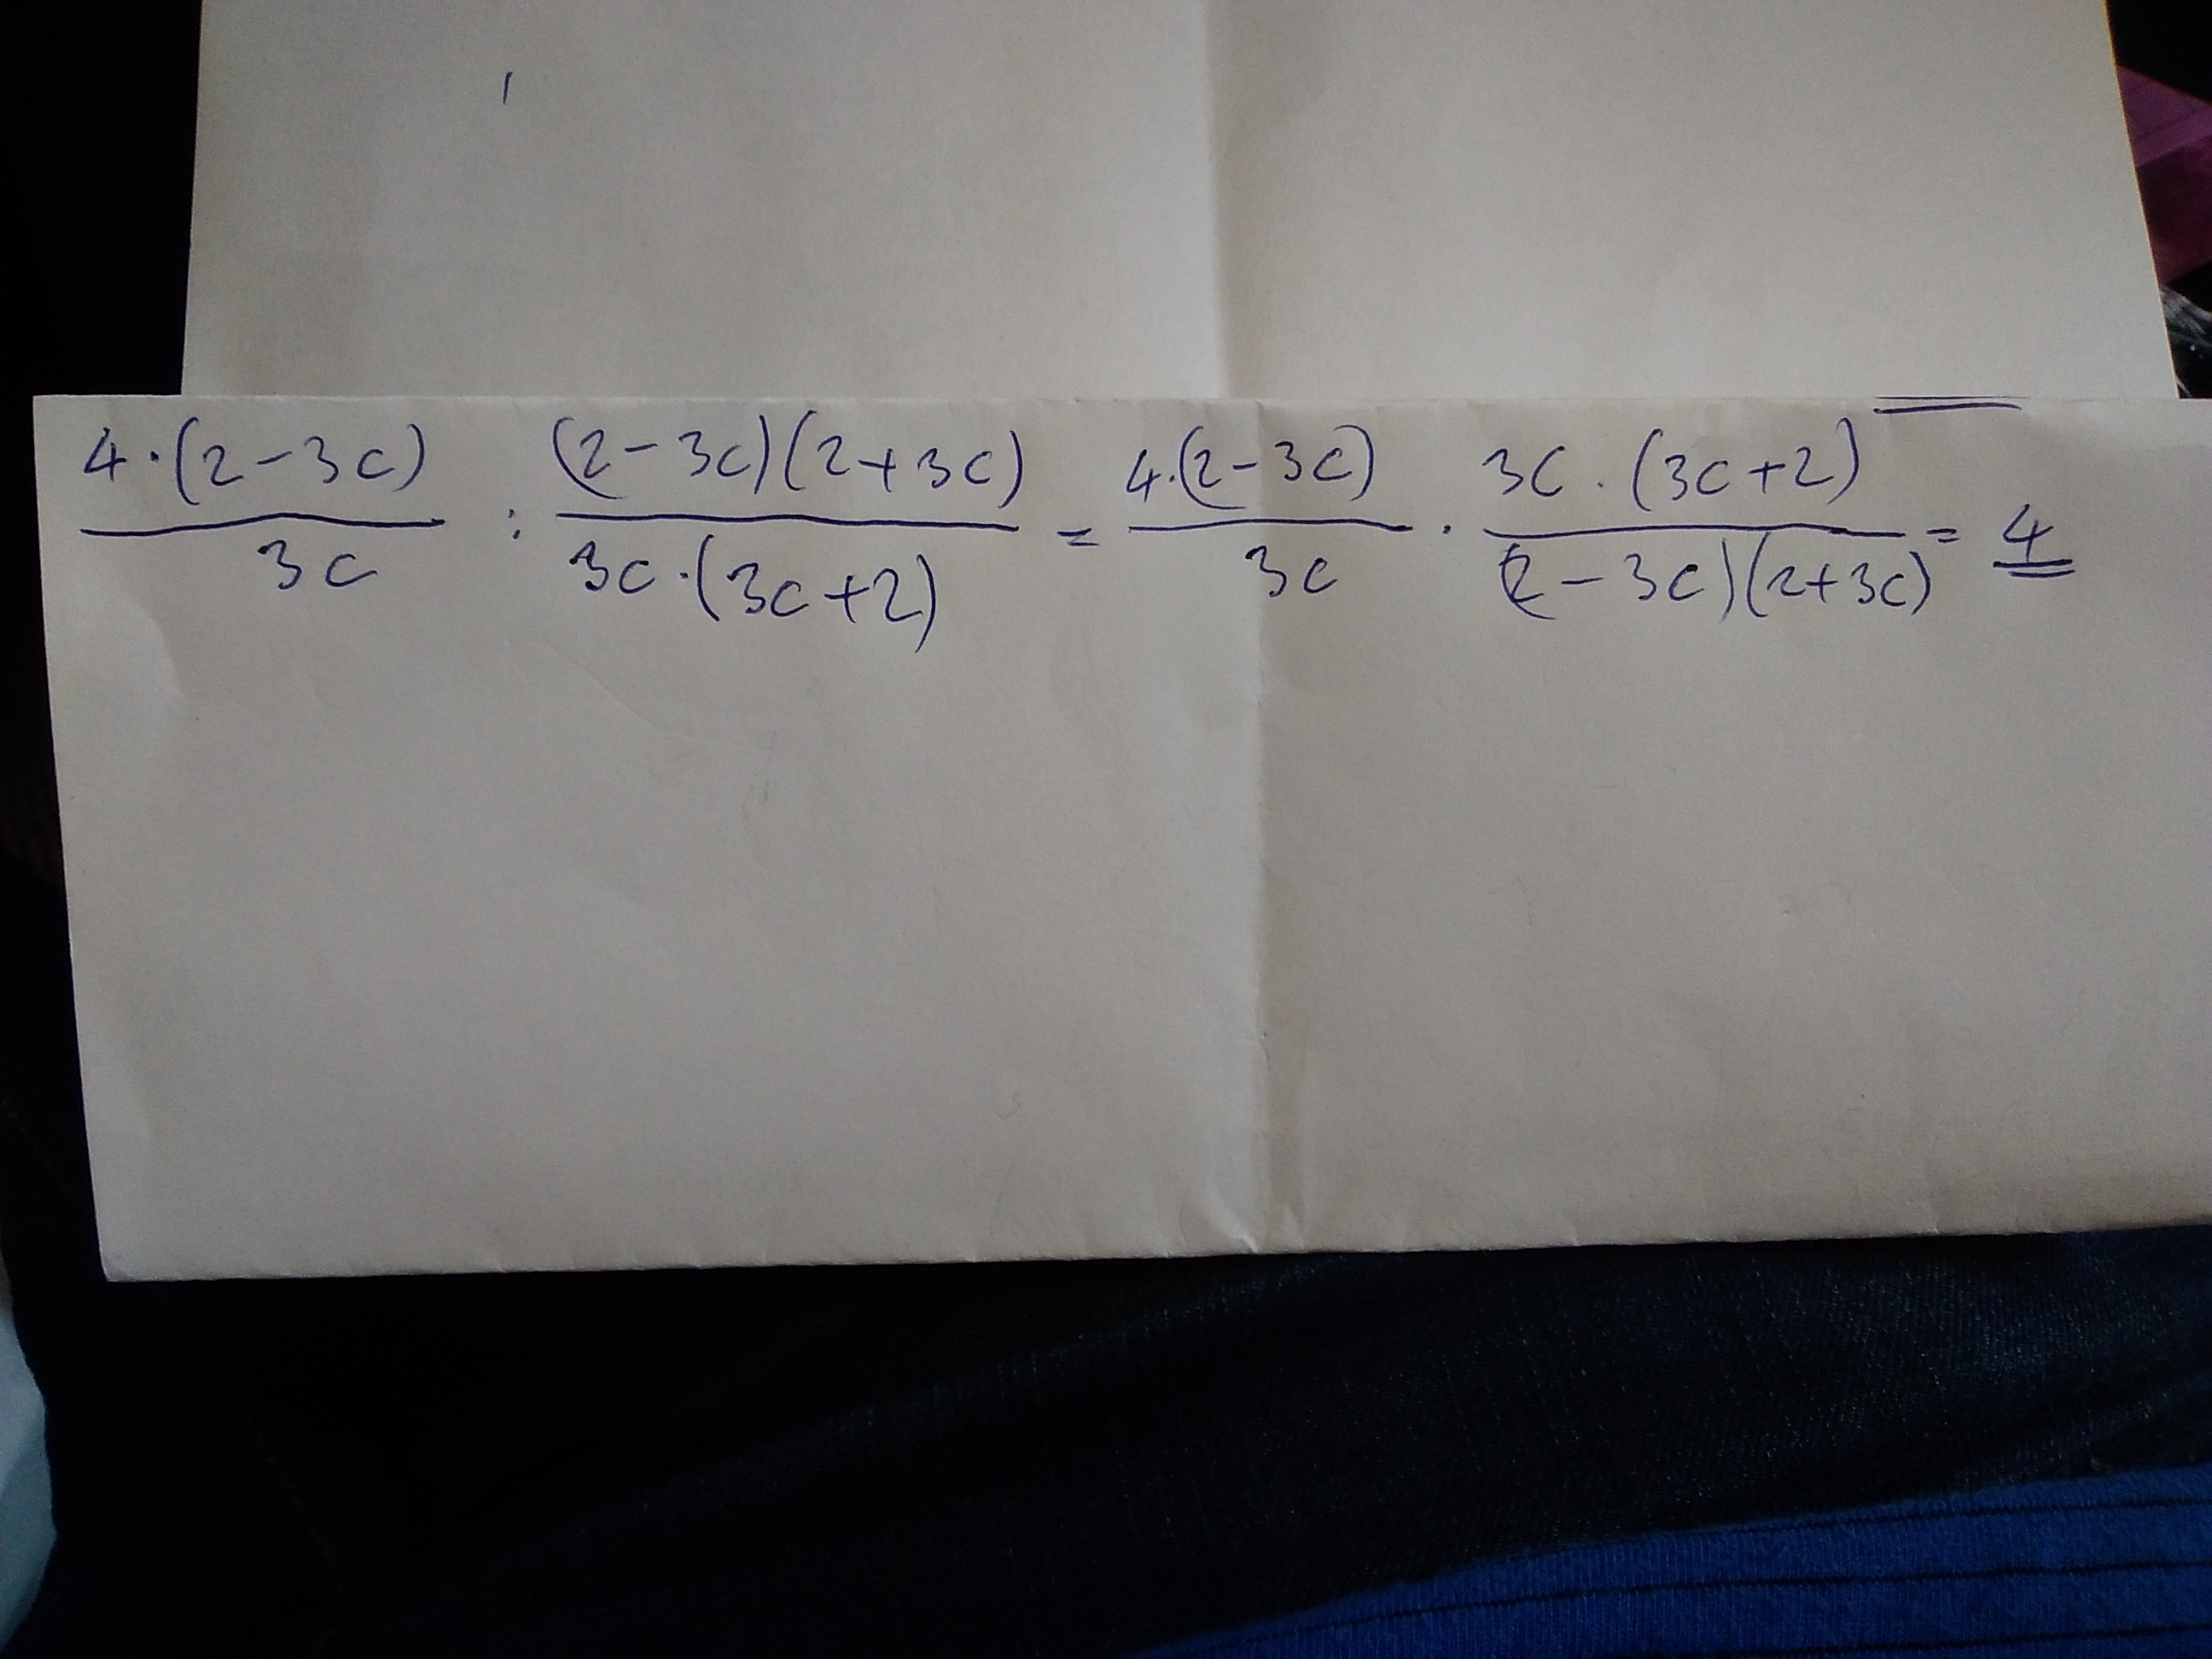 4·(2-3c)/3c : (2-3c)(2+3c)/3c·(3c+2) = 4·(2-3c)/3c · 3c·(3c+2)/(2-3c)(2+3c) = 4